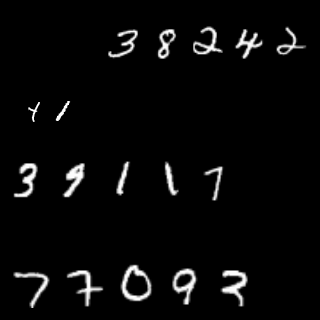 3 8 2 4 2
+ 1
3 9 1 1 7
7 7 0 9 3